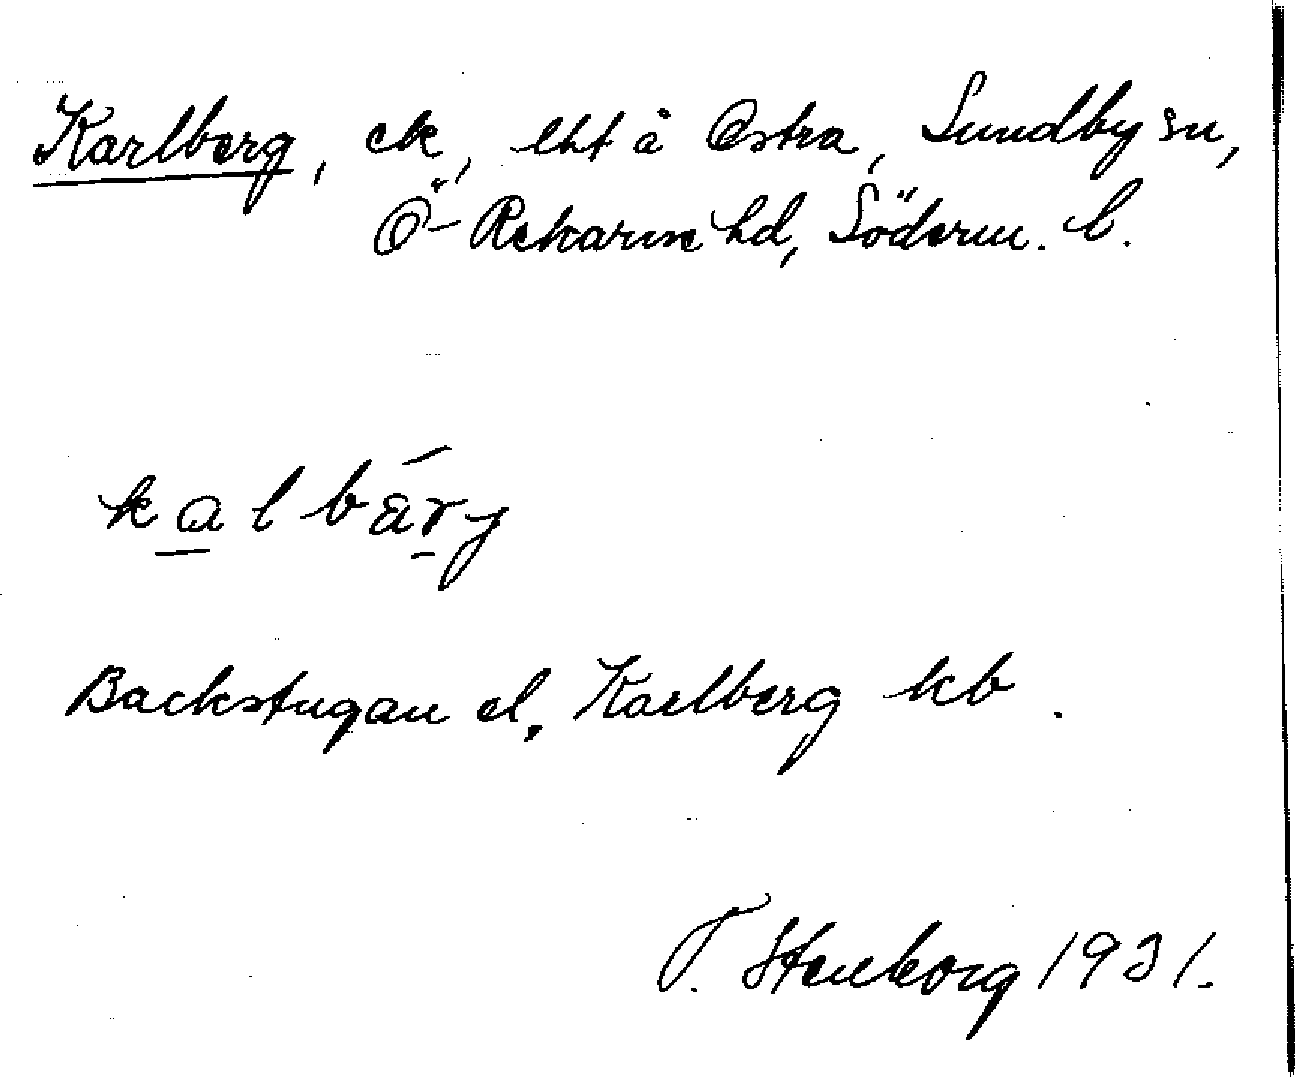 Karlberg, ek, lht å Östra, Sundby sn,
Ö-Rekarne hd, Söderm. l.
kalbärj
Backstugan el. Karlberg kb.
T. Stenborg 1931.